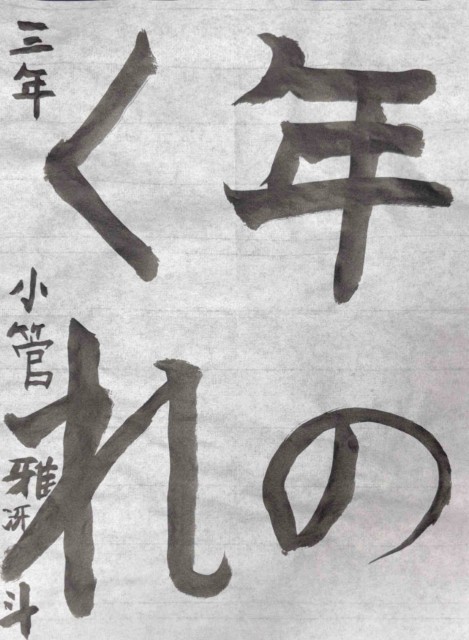 年の
くれ
三年 小管 雅冴斗